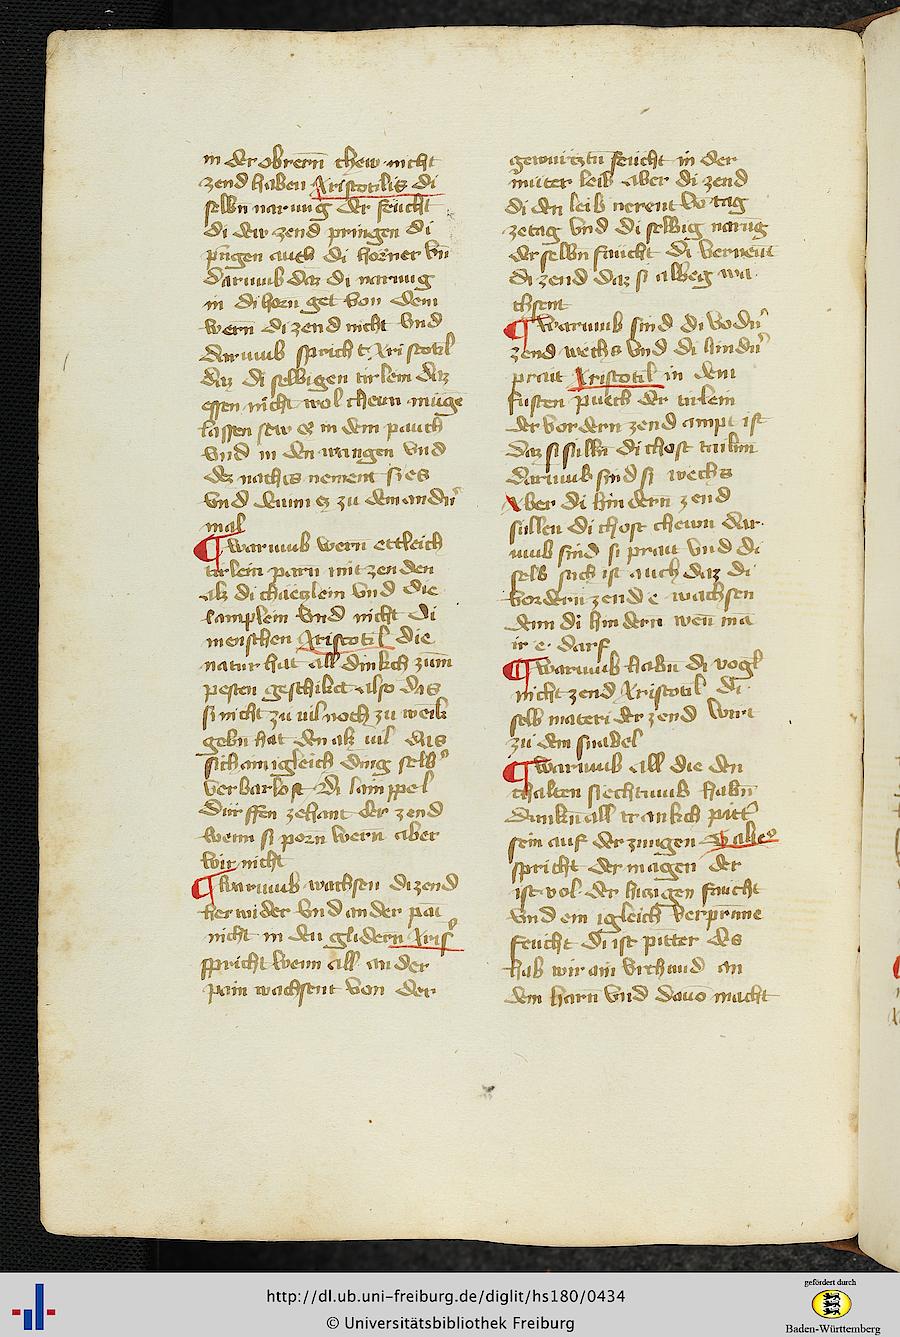 in der obrern chew nicht
zend haben Aristotilis di
selbn narung der feucht
di dew zend pringen di
pringen auch di horner vn
darumb daz di narung
in di horn get von dem
wern di zend nicht vnd
darumb spricht Aristotil
daz di selbigen tirlein daz
essen nicht wol chewn muge
lassen sew ez in dem pauch
vnd in den wangen vnd
dez nachts nement si es
vnd dewn ez zu dem andn
mal
¶ warumb wern ettleich
tirlein parn mit zenden
alz di chaeczlein vnd die
lamplein vnd nicht di
menschen Aristotil die
natur hat all dinkch zum
pesten geschikct also das
si nicht zu uil noch zu wenik
gebn hat den alz uil das
sich ain igleich ding selb
verbarlost Di lamppel
dürffen zehant der zend
wenn si porn wern aber
wir nicht
¶ warumb wachsen di zend
herwider vnd ander pain
nicht in den glidern Aris
spricht wenn all ander
pain wachsent von der
gewurtztn feucht in der
muter leib aber di zend
di den leib nerent vo tag
ze tag vnd di selbig narug
der selbn faucht di vernewt
di zend daz si albeg wa
chsent
¶ warumb sind di vodn
zend wechs vnd di hindn
prait Aristotil in dem
funften puech der tirlein
der vordern zend ampt ist
daz si sulln di chost tailn
darumb sind si wechs
Aber di hindern zend
sullen di chost chewn dar
umb sind si prait vnd di
selb sach ist auch daz di
vordern zend e wachsen
denn di hindern wenn ma
ir e darf
¶ warumb habn di vogl
nicht zend Aristotil di
selb materi der zend wirt
zu dem snabel
¶ warumb all die den
chalten siechtumb habn
dunkn all trankch pitt
sein auf der zungen
spricht der magen der
ist vol der hiczigen faucht
vnd ein igleich verprante
feucht di ist pitter des
hab wir ain vrchund an
dem harn vnd dauo macht
http://dl.ub.uni-freiburg.de/diglit/hs180/0434
© Universitätsbibliothek Freiburg
gefördert durch
Baden-Württemberg